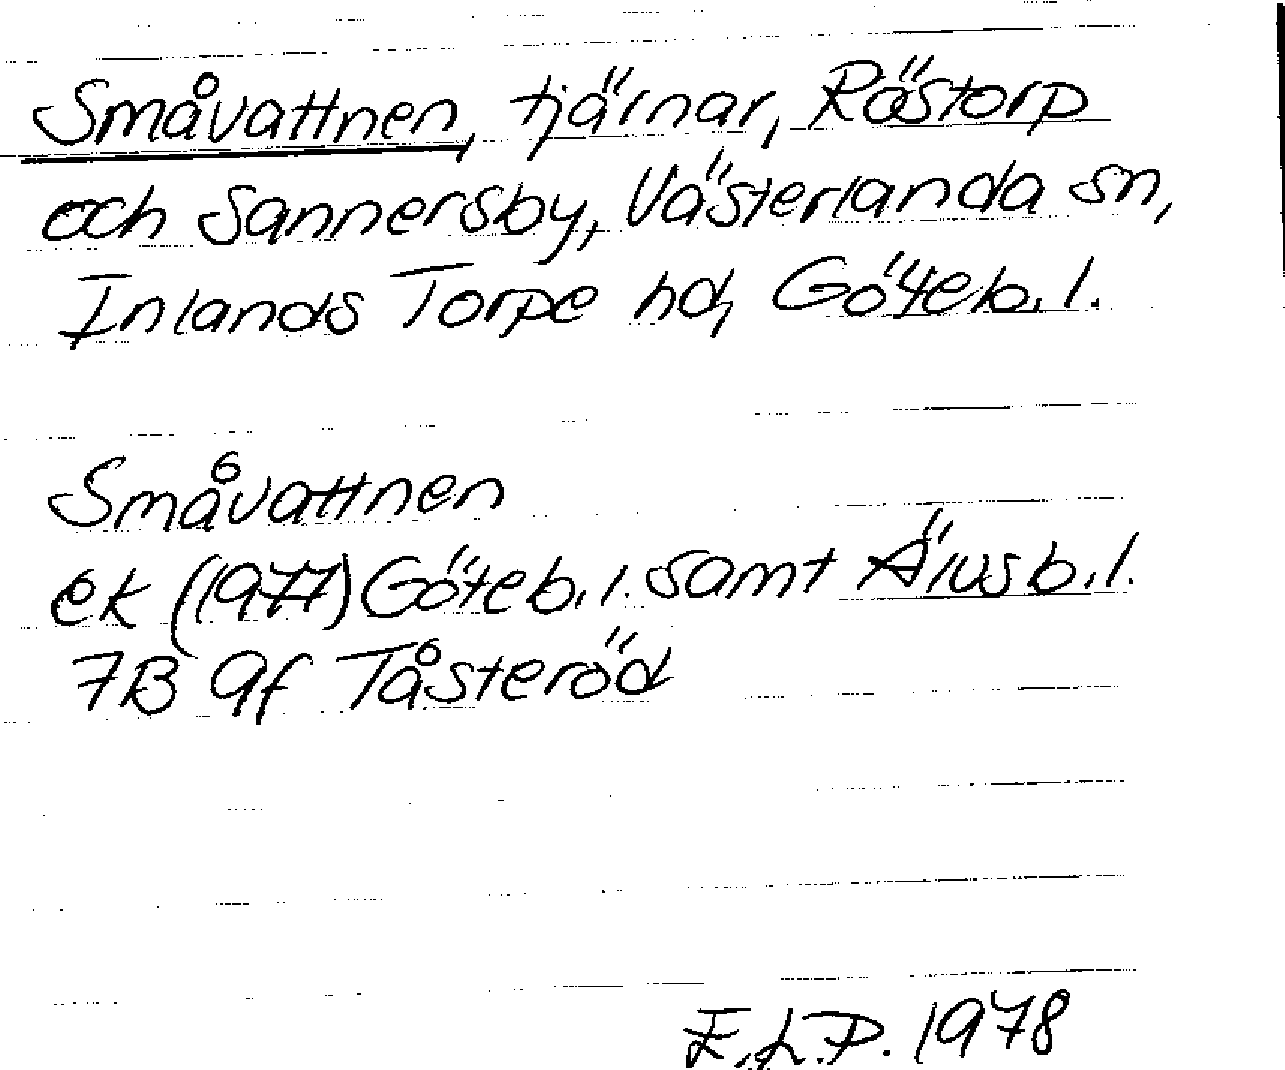 Småvattnen, tjärnar, Röstorp
och Sannersby, Västerlanda sn,
Inlands Torpe hd, Göteb. l.
Småvattnen
ek (1977) Göteb. l. samt Älvsb. l.
7B 9f Tåsteröd
E.L.P. 1978